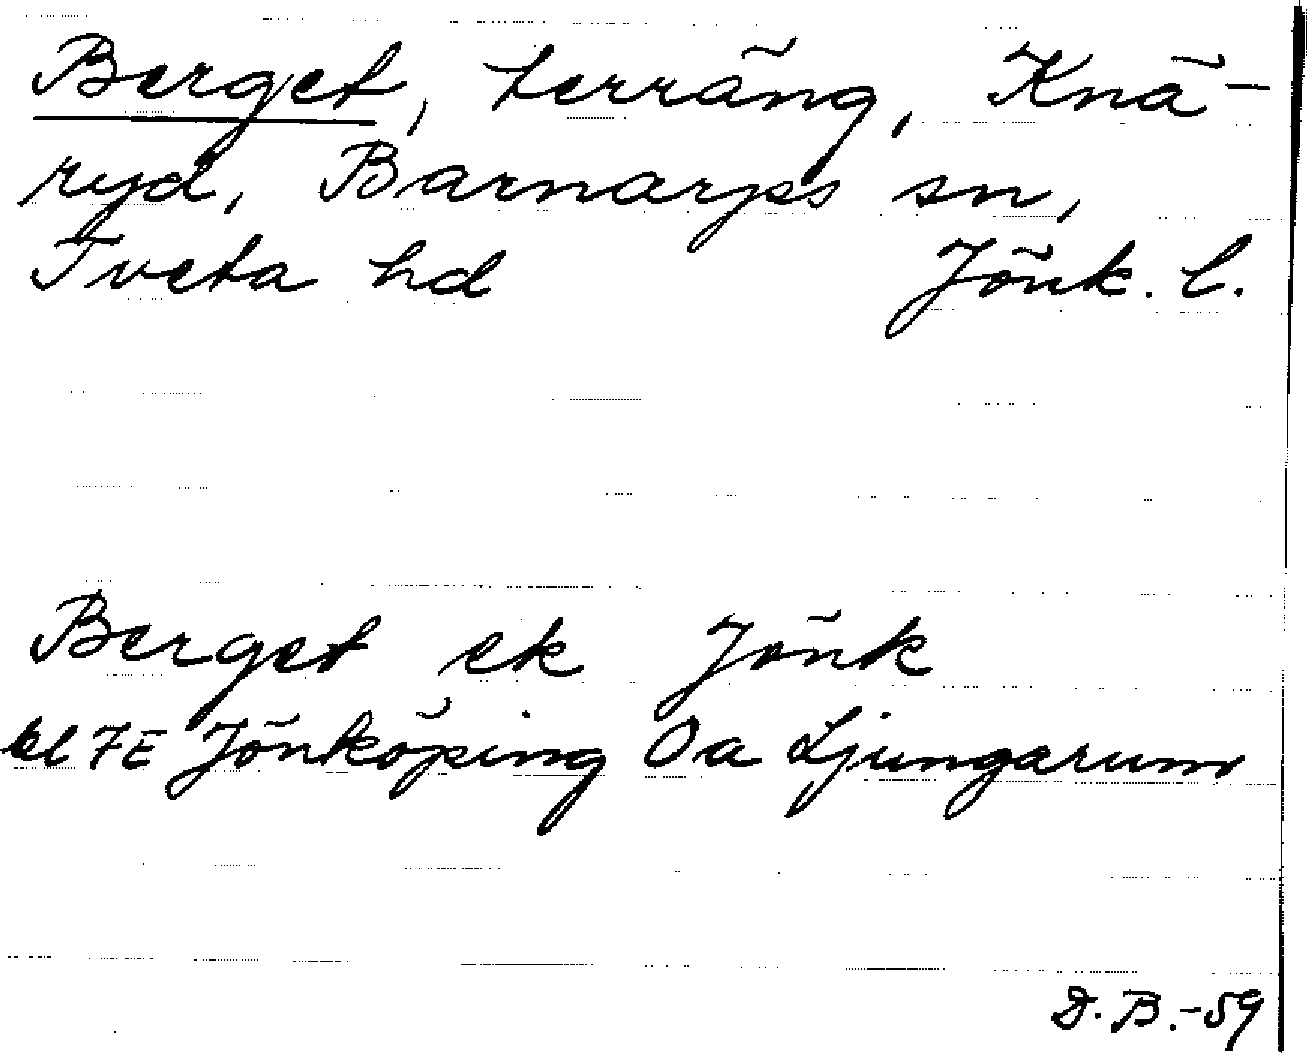 Berget, terräng, Knä-
ryd, Barnarps sn,
Tveta hd Jönk. l.
Berget ek Jönk
bl 7E Jönköping Oa Ljungarum
D. B. -59